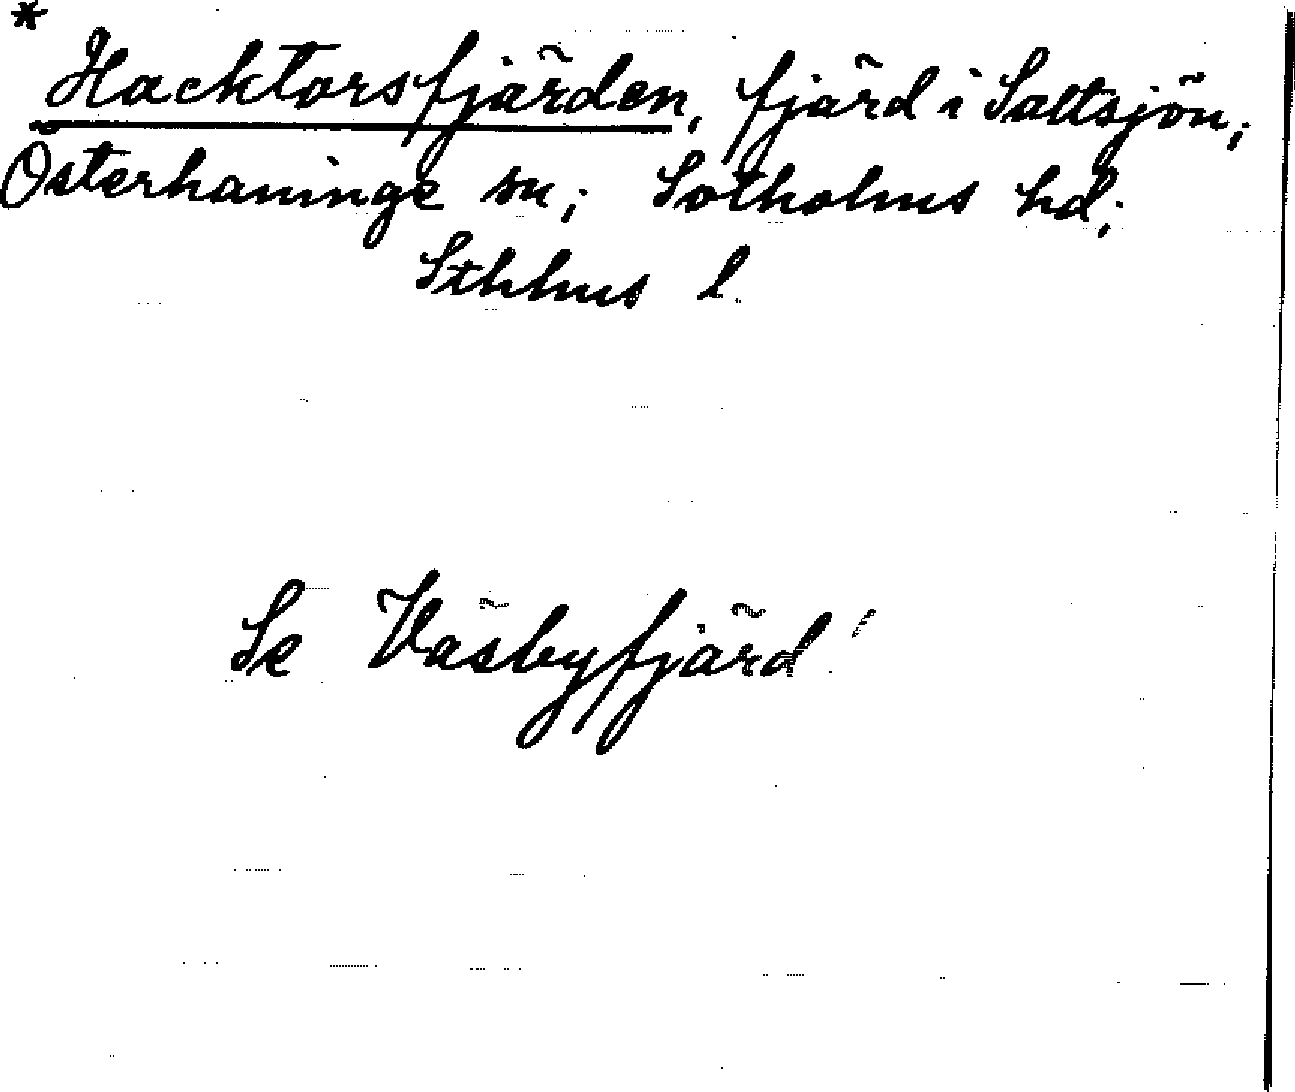 * Hacktorsfjärden, fjärd i Saltsjön;
Österhaninge sn; Sotholms hd;
Sthlms l.
Se Väsbyfjärd